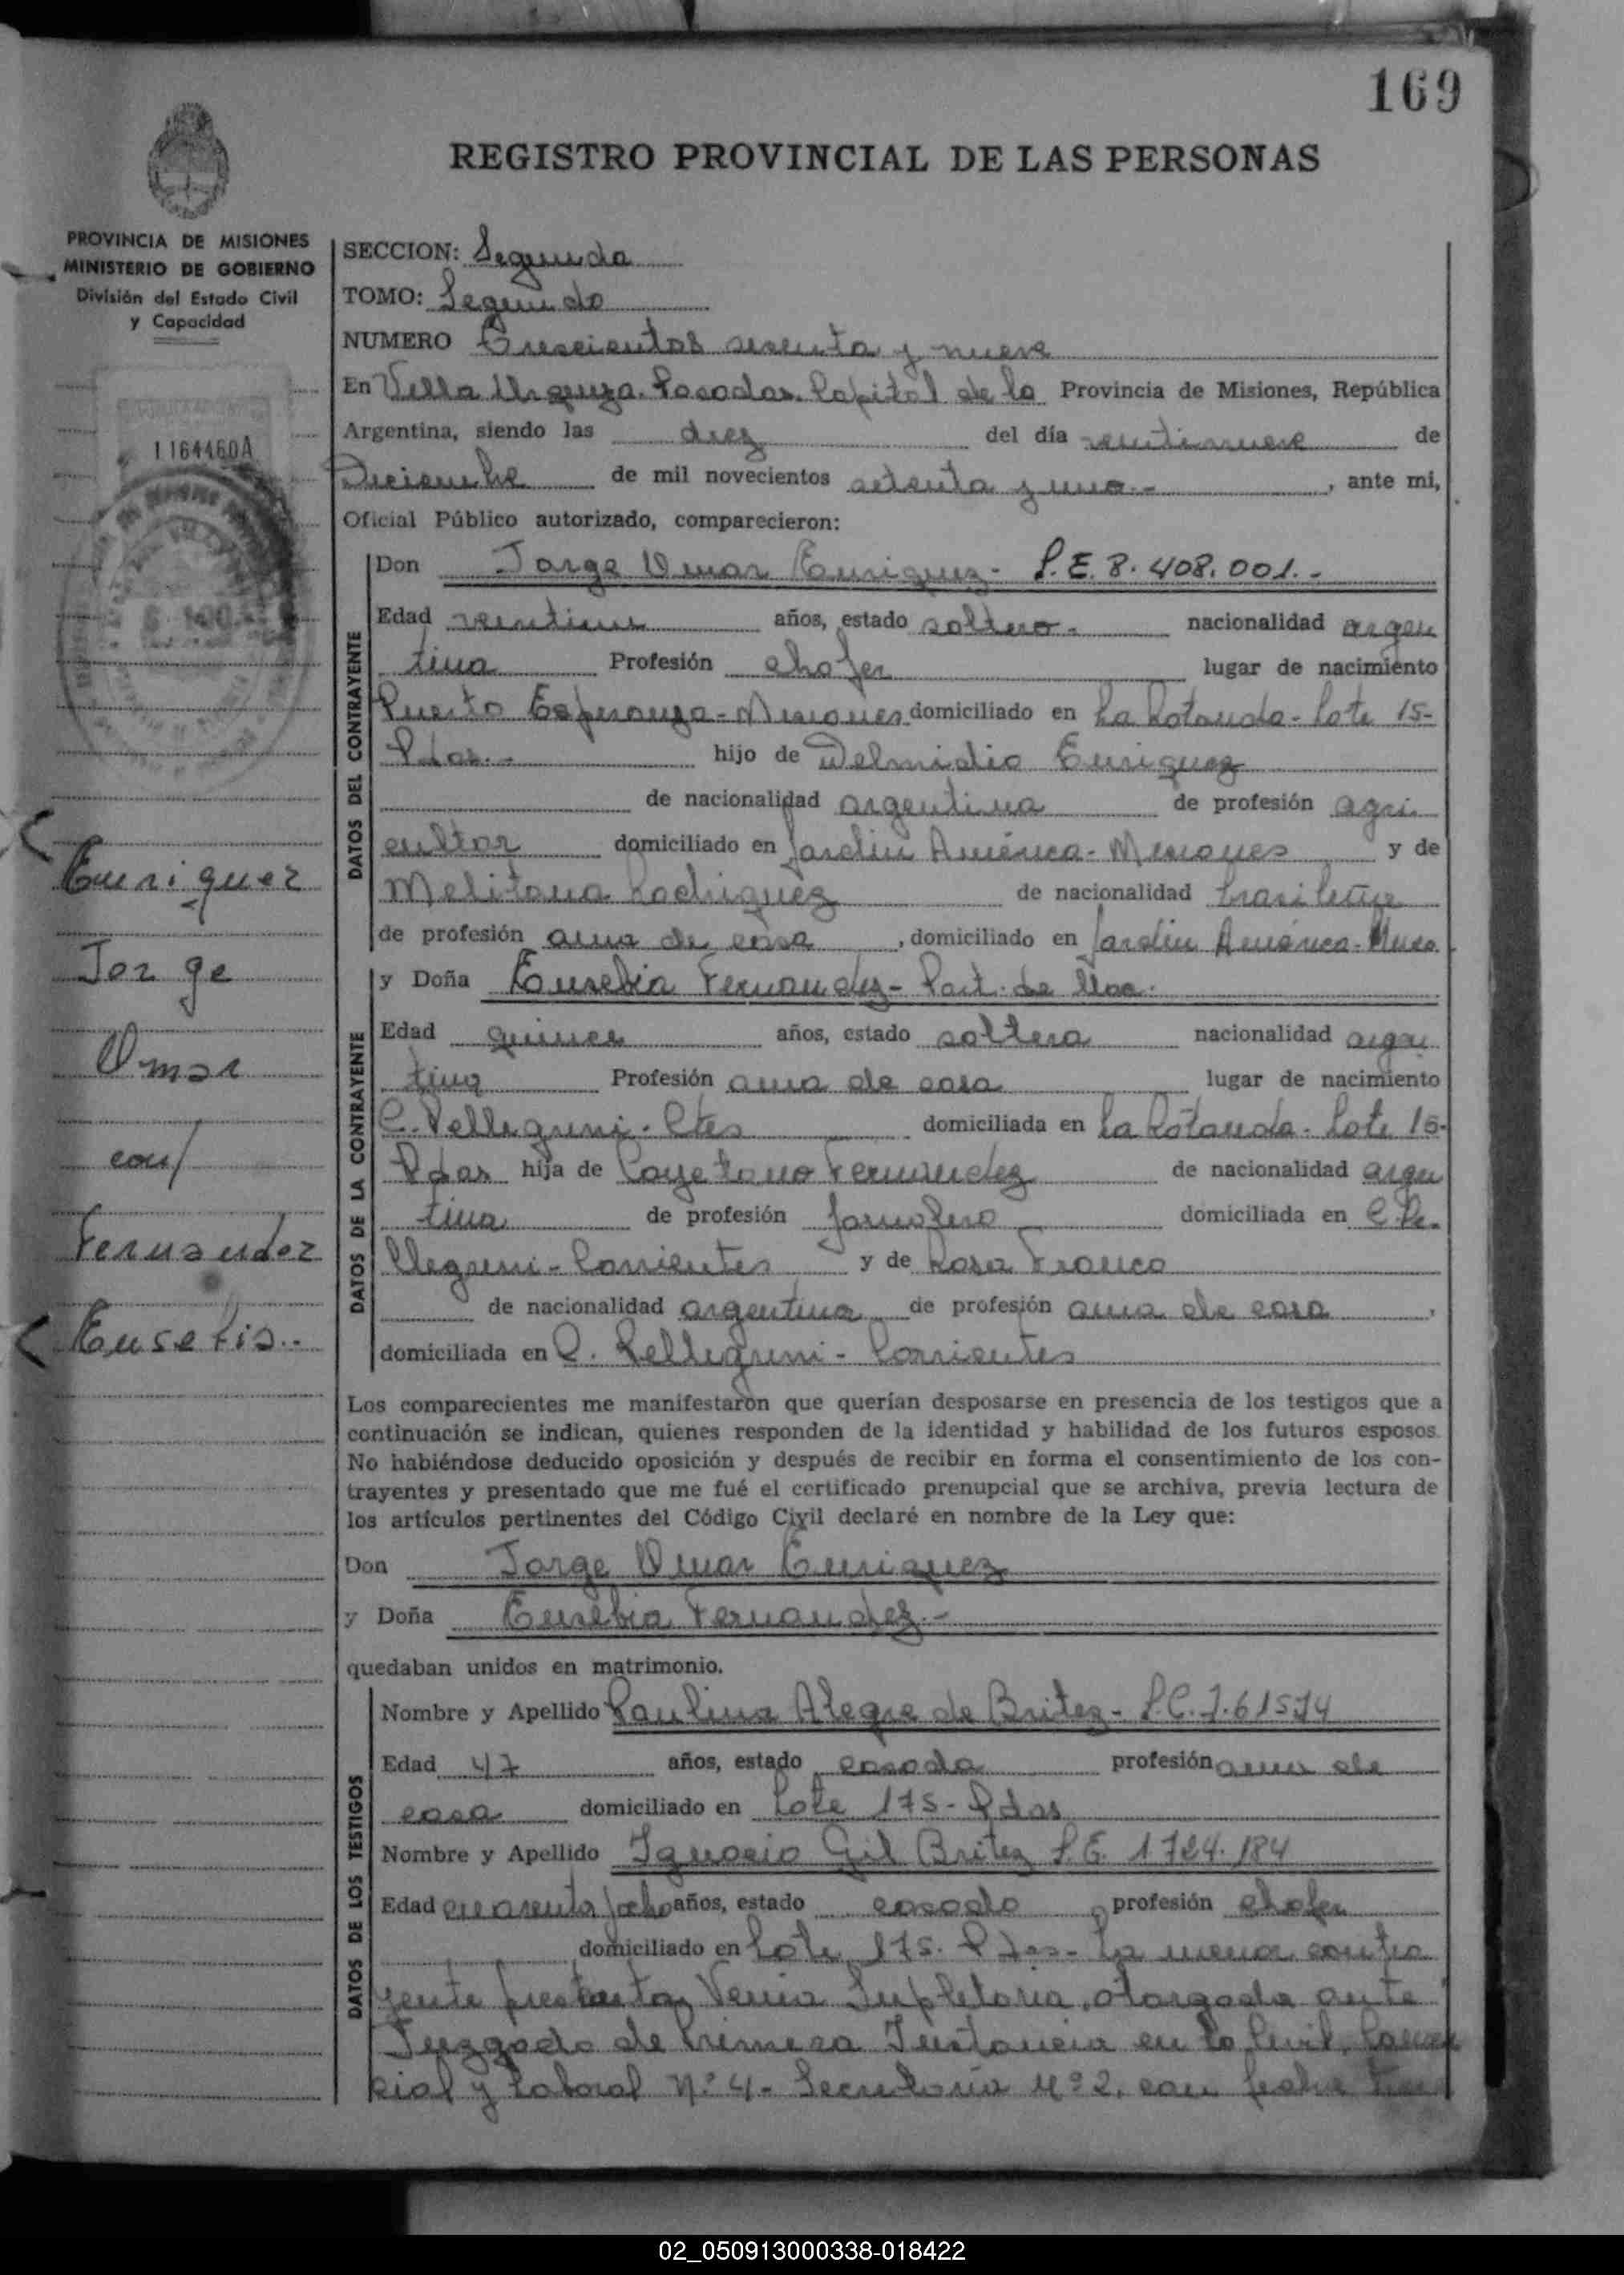 169
REGISTRO PROVINCIAL DE LAS PERSONAS
PROVINCIA DE MISIONES
MINISTERIO DE GOBIERNO
División del Estado Civil
y Capacidad
1164460A
Enriquez
Jorge
Omar
con/
Fernandez
Eusebia.-
SECCION: Segunda
TOMO: Segundo
NUMERO Trescientos sesenta y nueve
En Villa Urquiza. Posadas. Capital de la Provincia de Misiones, República
Argentina, siendo las diez del día veintinueve de
Diciembre de mil novecientos setenta y uno.- , ante mi,
Oficial Público autorizado, comparecieron:
DATOS DEL CONTRAYENTE
Don Jorge Omar Enriquez- L.E. 8.408.001.-
Edad años, estado soltero.- nacionalidad argen
tina Profesión chofer lugar de nacimiento
Puerto Esperanza-Misiones domiciliado en La Rotonda-Lote 15-
Pdas.- hijo de Delmidio Enriquez
de nacionalidad argentina de profesión agri
cultor domiciliado en Jardin América-Misiones y de
Melitona Rodriguez de nacionalidad brasileña
de profesión ama de casa , domiciliado en Jardin América-Mnes.
DATOS DE LA CONTRAYENTE
y Doña Eusebia Fernandez- Part. de
Edad quince años, estado soltera nacionalidad argen
tina Profesión ama de casa lugar de nacimiento
C. Pellegrini-Ctes domiciliada en La Rotonda-Lote 15-
Pdas hija de Cayetano Fernandez de nacionalidad argen
tina de profesión jornalero domiciliada en C. Pe-
llegrini-Corrientes y de Rosa Franco
de nacionalidad argentina de profesión ama de casa ,
domiciliada en C. Pellegrini-Corrientes
Los comparecientes me manifestaron que querían desposarse en presencia de los testigos que a
continuación se indican, quienes responden de la identidad y habilidad de los futuros esposos.
No habiéndose deducido oposición y después de recibir en forma el consentimiento de los con-
trayentes y presentado que me fué el certificado prenupcial que se archiva, previa lectura de
los artículos pertinentes del Código Civil declaré en nombre de la Ley que:
Don Jorge Omar Enriquez
y Doña Eusebia Fernandez.-
quedaban unidos en matrimonio.
DATOS DE LOS TESTIGOS
Nombre y Apellido Paulina Alegre de Britez- L.C. 7.61574
Edad 47 años, estado casada profesión ama de
casa domiciliado en Lote 175-Pdas
Nombre y Apellido Ignacio Gil Britez L.E. 1724.184
Edad cuarenta y ocho años, estado casado profesión chofer
domiciliado en Lote 175. Pdas- La menor contra
yente presenta Venia Supletoria, otorgada ante
Juzgado de Primera Instancia en lo Civil, Comer
cial y Laboral Nº4- Secretaria Nº2, con fecha
02_050913000338-018422